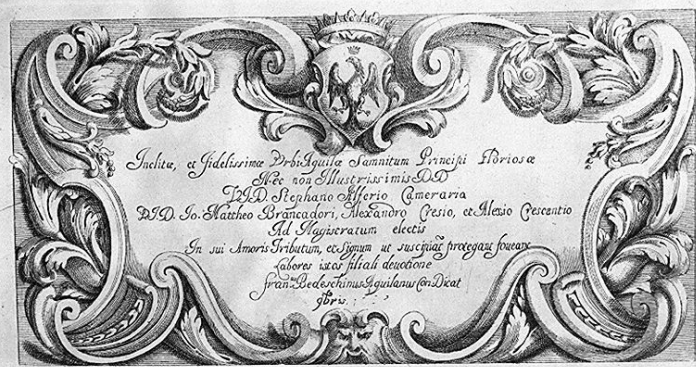 Inclitæ, et Fidelissimæ Vrbi Aquilæ Samnitum Principi Floriosæ
Nec non Illustrissimis D.D
V.I.D. Stephano Alferio Cameraria
V.I.D. Io. Mattheo Brancadori, Alexandro Cresio, et Alexio Crescentio
Ad Magistratum electis
In sui Amoris Tributum, et Signum ut suscipiãt protegant foveant
Labores istos filiali devotione
Fran.us Bedeschinus Aquilanus Con Dicat
9bris :